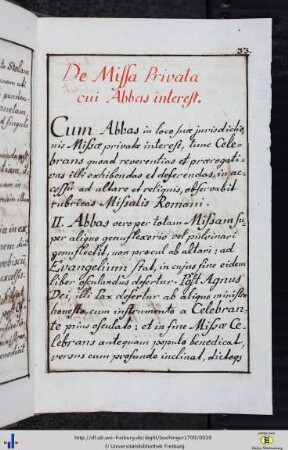 33.
De Missa Privata
cui Abbas interest.
Cum Abbas in loco suæ jurisdictio-
nis Missæ privatæ interest, tunc Cele-
brans quoad reverentias et prærogati-
vas illi exhibendas et deferendas, in ac-
cessu ad altare et reliquis, observabit
rubricas Missalis Romani.
II. Abbas vero per totam Missam su-
per aliquo genuflexorio vel pulvinari
genuflectit, non procul ab altari: ad
Evangelium stat, in cujus fine eidem
liber osculandus defertur. Post Agnus
Dei, illi Pax defertur ab aliquo ministro
honesto, cum instrumento a Celebran-
te prius osculato: et in fine Missæ Ce-
lebrans antequam populo benedicat,
versus eum profunde inclinat, dictoq3
http://dl.ub.uni-freiburg.de/diglit/buchinger1700/0038
© Universitätsbibliothek Freiburg